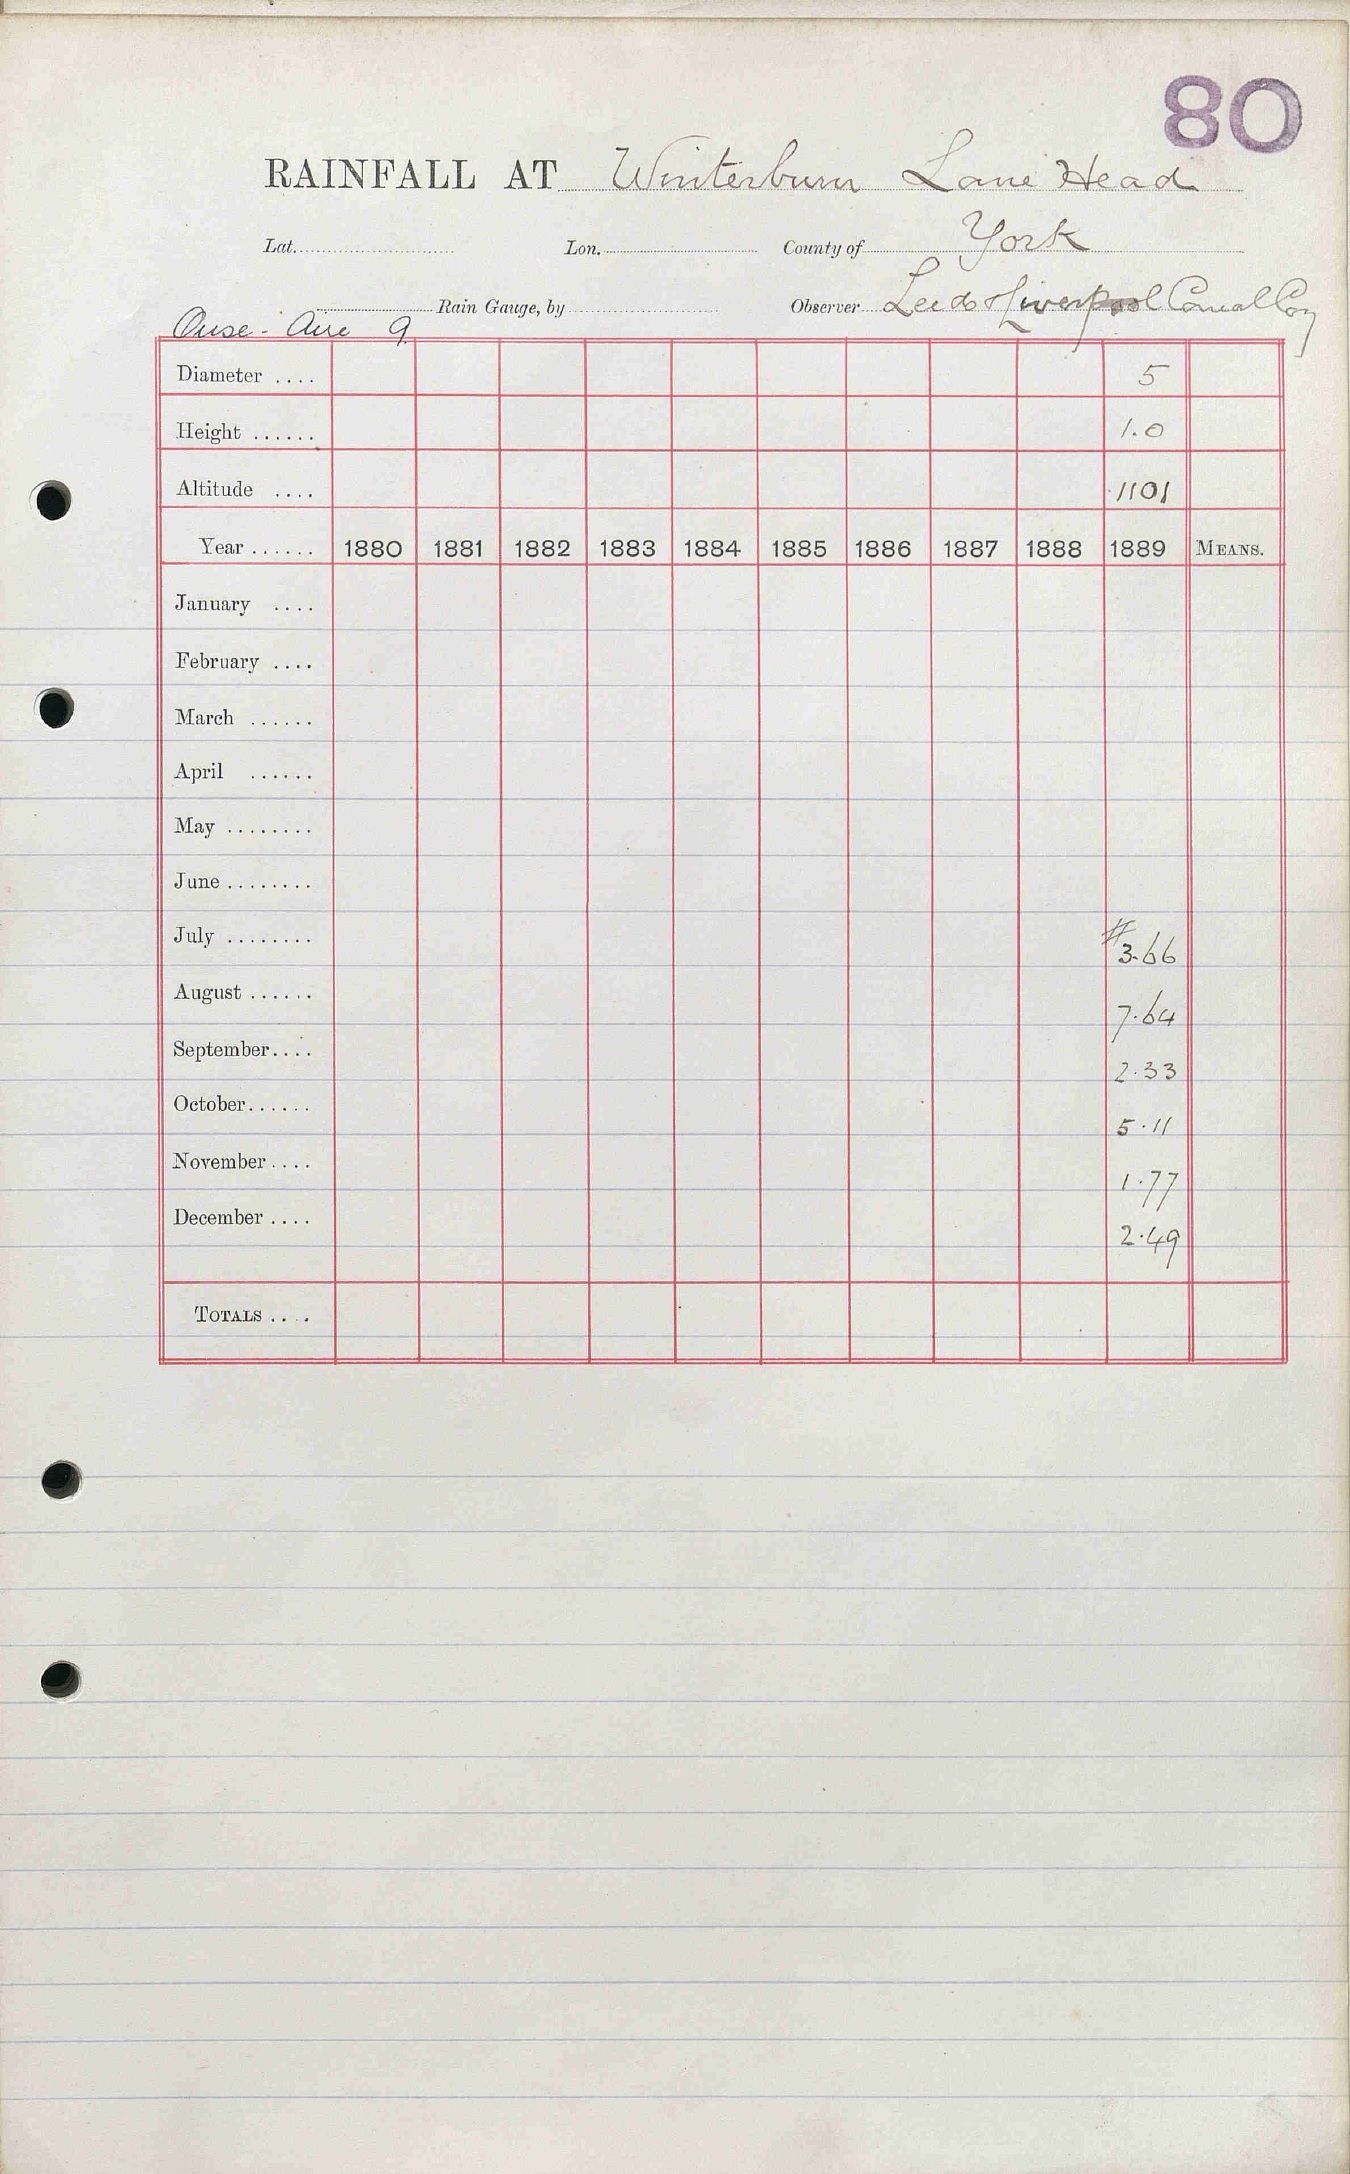 80
RAINFALL AT Winterburn Lane Head
Lat. Lon. County of York
Rain Gauge, by Observer Leeds & Liverpool Canal Coy
Ouse - Aire 9.
Diameter .... 5
Height ...... 1.0
Altitude .... 1101
Year ...... 1880 1881 1882 1883 1884 1885 1886 1887 1888 1889 MEANS.
January ....
February ....
March ......
April ......
May ........
June ........
July ........ # 3.66
August ...... 7.64
September.... 2.33
October...... 5.11
November.... 1.77
December .... 2.49
TOTALS ....